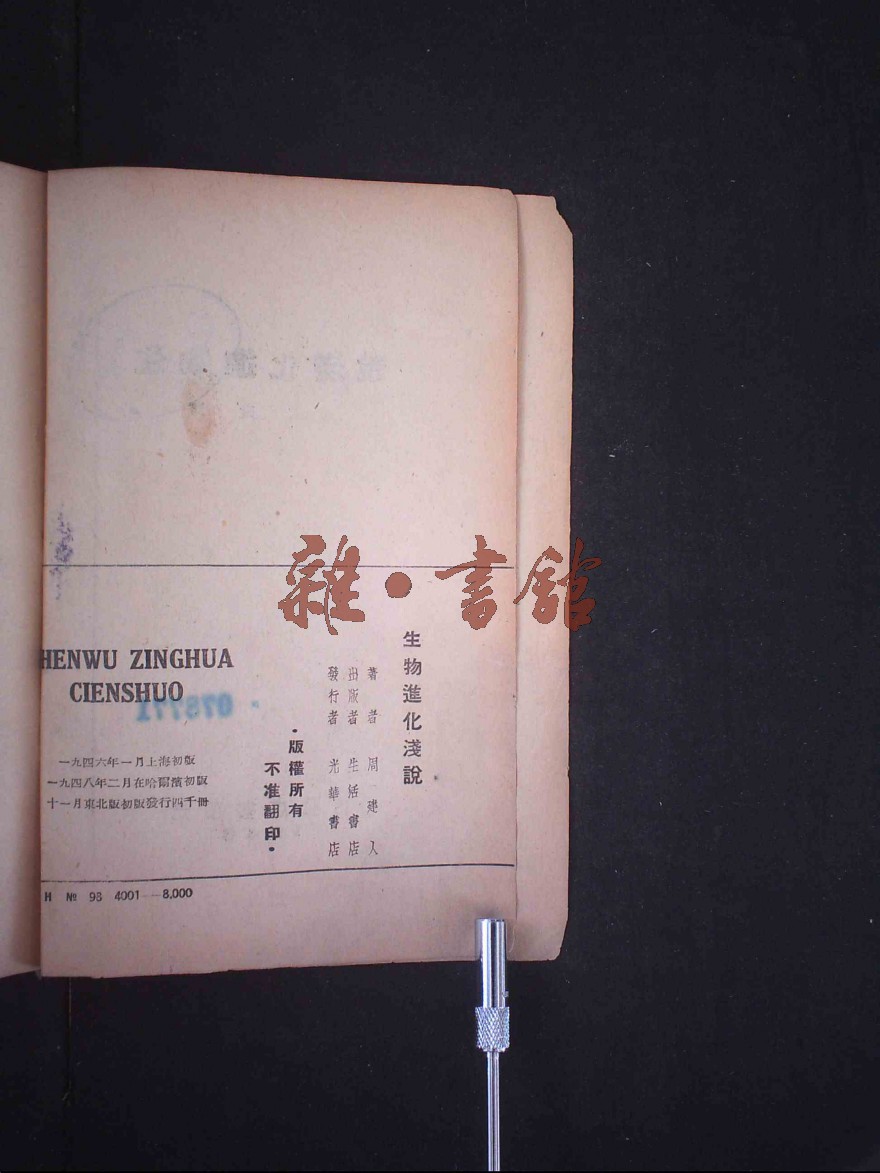 雜·書館
生物進化淺說
著者 周建人
出版者 生活書店
發行者 光華書店
·版權所有
不准翻印·
HENWU ZINGHUA
CIENSHUO
078771
一九四六年一月上海初版
一九四八年二月在哈爾濱初版
十一月東北版初版發行四千冊
H № 98 4001—8,000